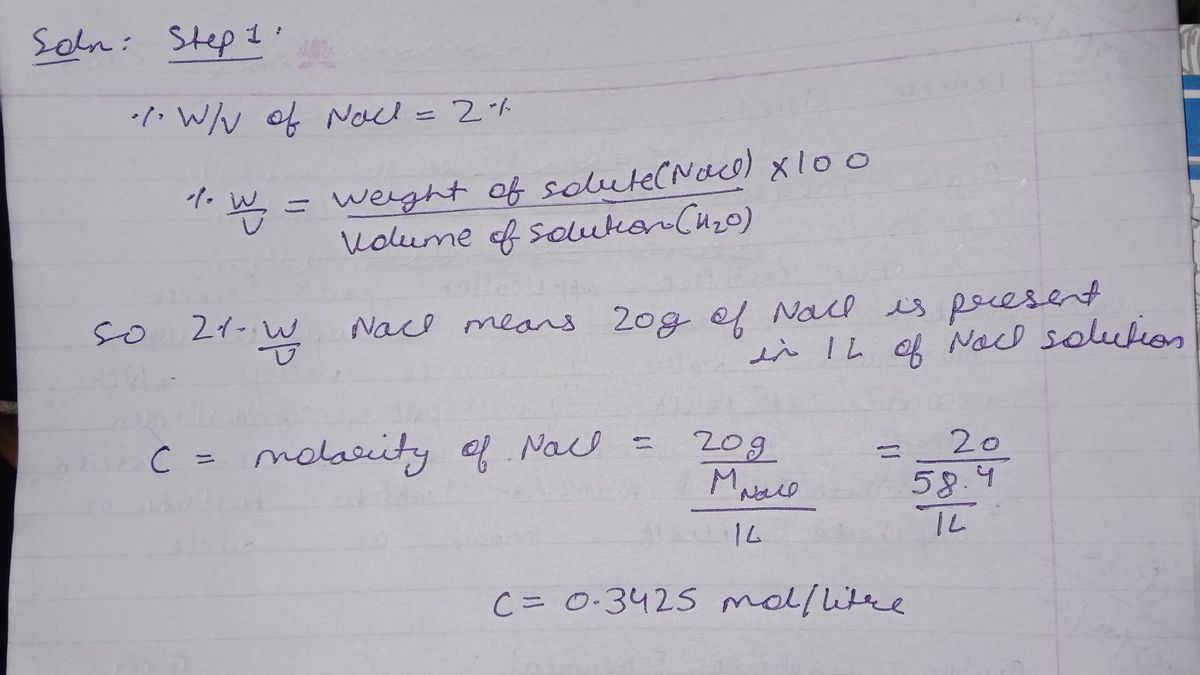 Soln: Step 1:
% W/V of NaCl = 2%
% W/V = weight of solute(NaCl) x100
Volume of solution(H₂O)
so 2% W/V NaCl means 20g of NaCl is present
in 1L of NaCl solution
C = molarity of NaCl = 20g / M NaCl / 1L = 20 / 58.4 / 1L
C = 0.3425 mol/litre